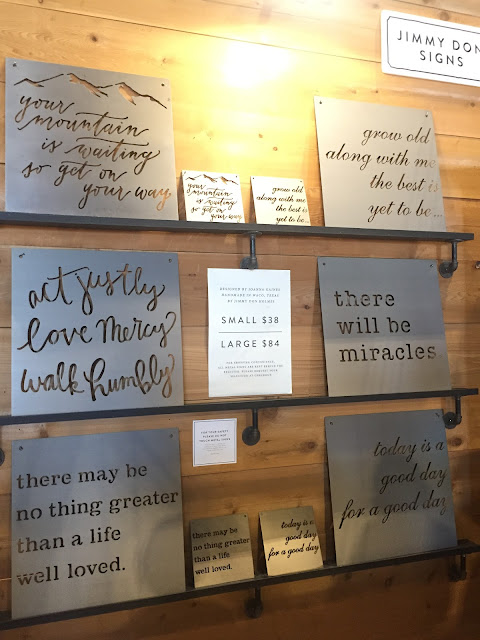 JIMMY DON
SIGNS
your
mountain
is waiting
so get on
your way
your
mountain
is waiting
so get on
your way
grow old
along with me
the best is
yet to be...
grow old
along with me
the best is
yet to be...
act justly
love mercy
walk humbly
DESIGNED BY JOANNA GAINES
HANDMADE IN WACO, TEXAS
BY JIMMY DON HOLMES
SMALL $38
LARGE $84
FOR SHOPPING CONVENIENCE,
ALL METAL SIGNS ARE KEPT BEHIND THE
there
will be
miracles
FOR YOUR SAFETY
PLEASE DO NOT
TOUCH METAL SIGNS
there may be
no thing greater
than a life
well loved.
there may be
no thing greater
than a life
well loved.
today is a
good day
for a good day
today is a
good day
for a good day